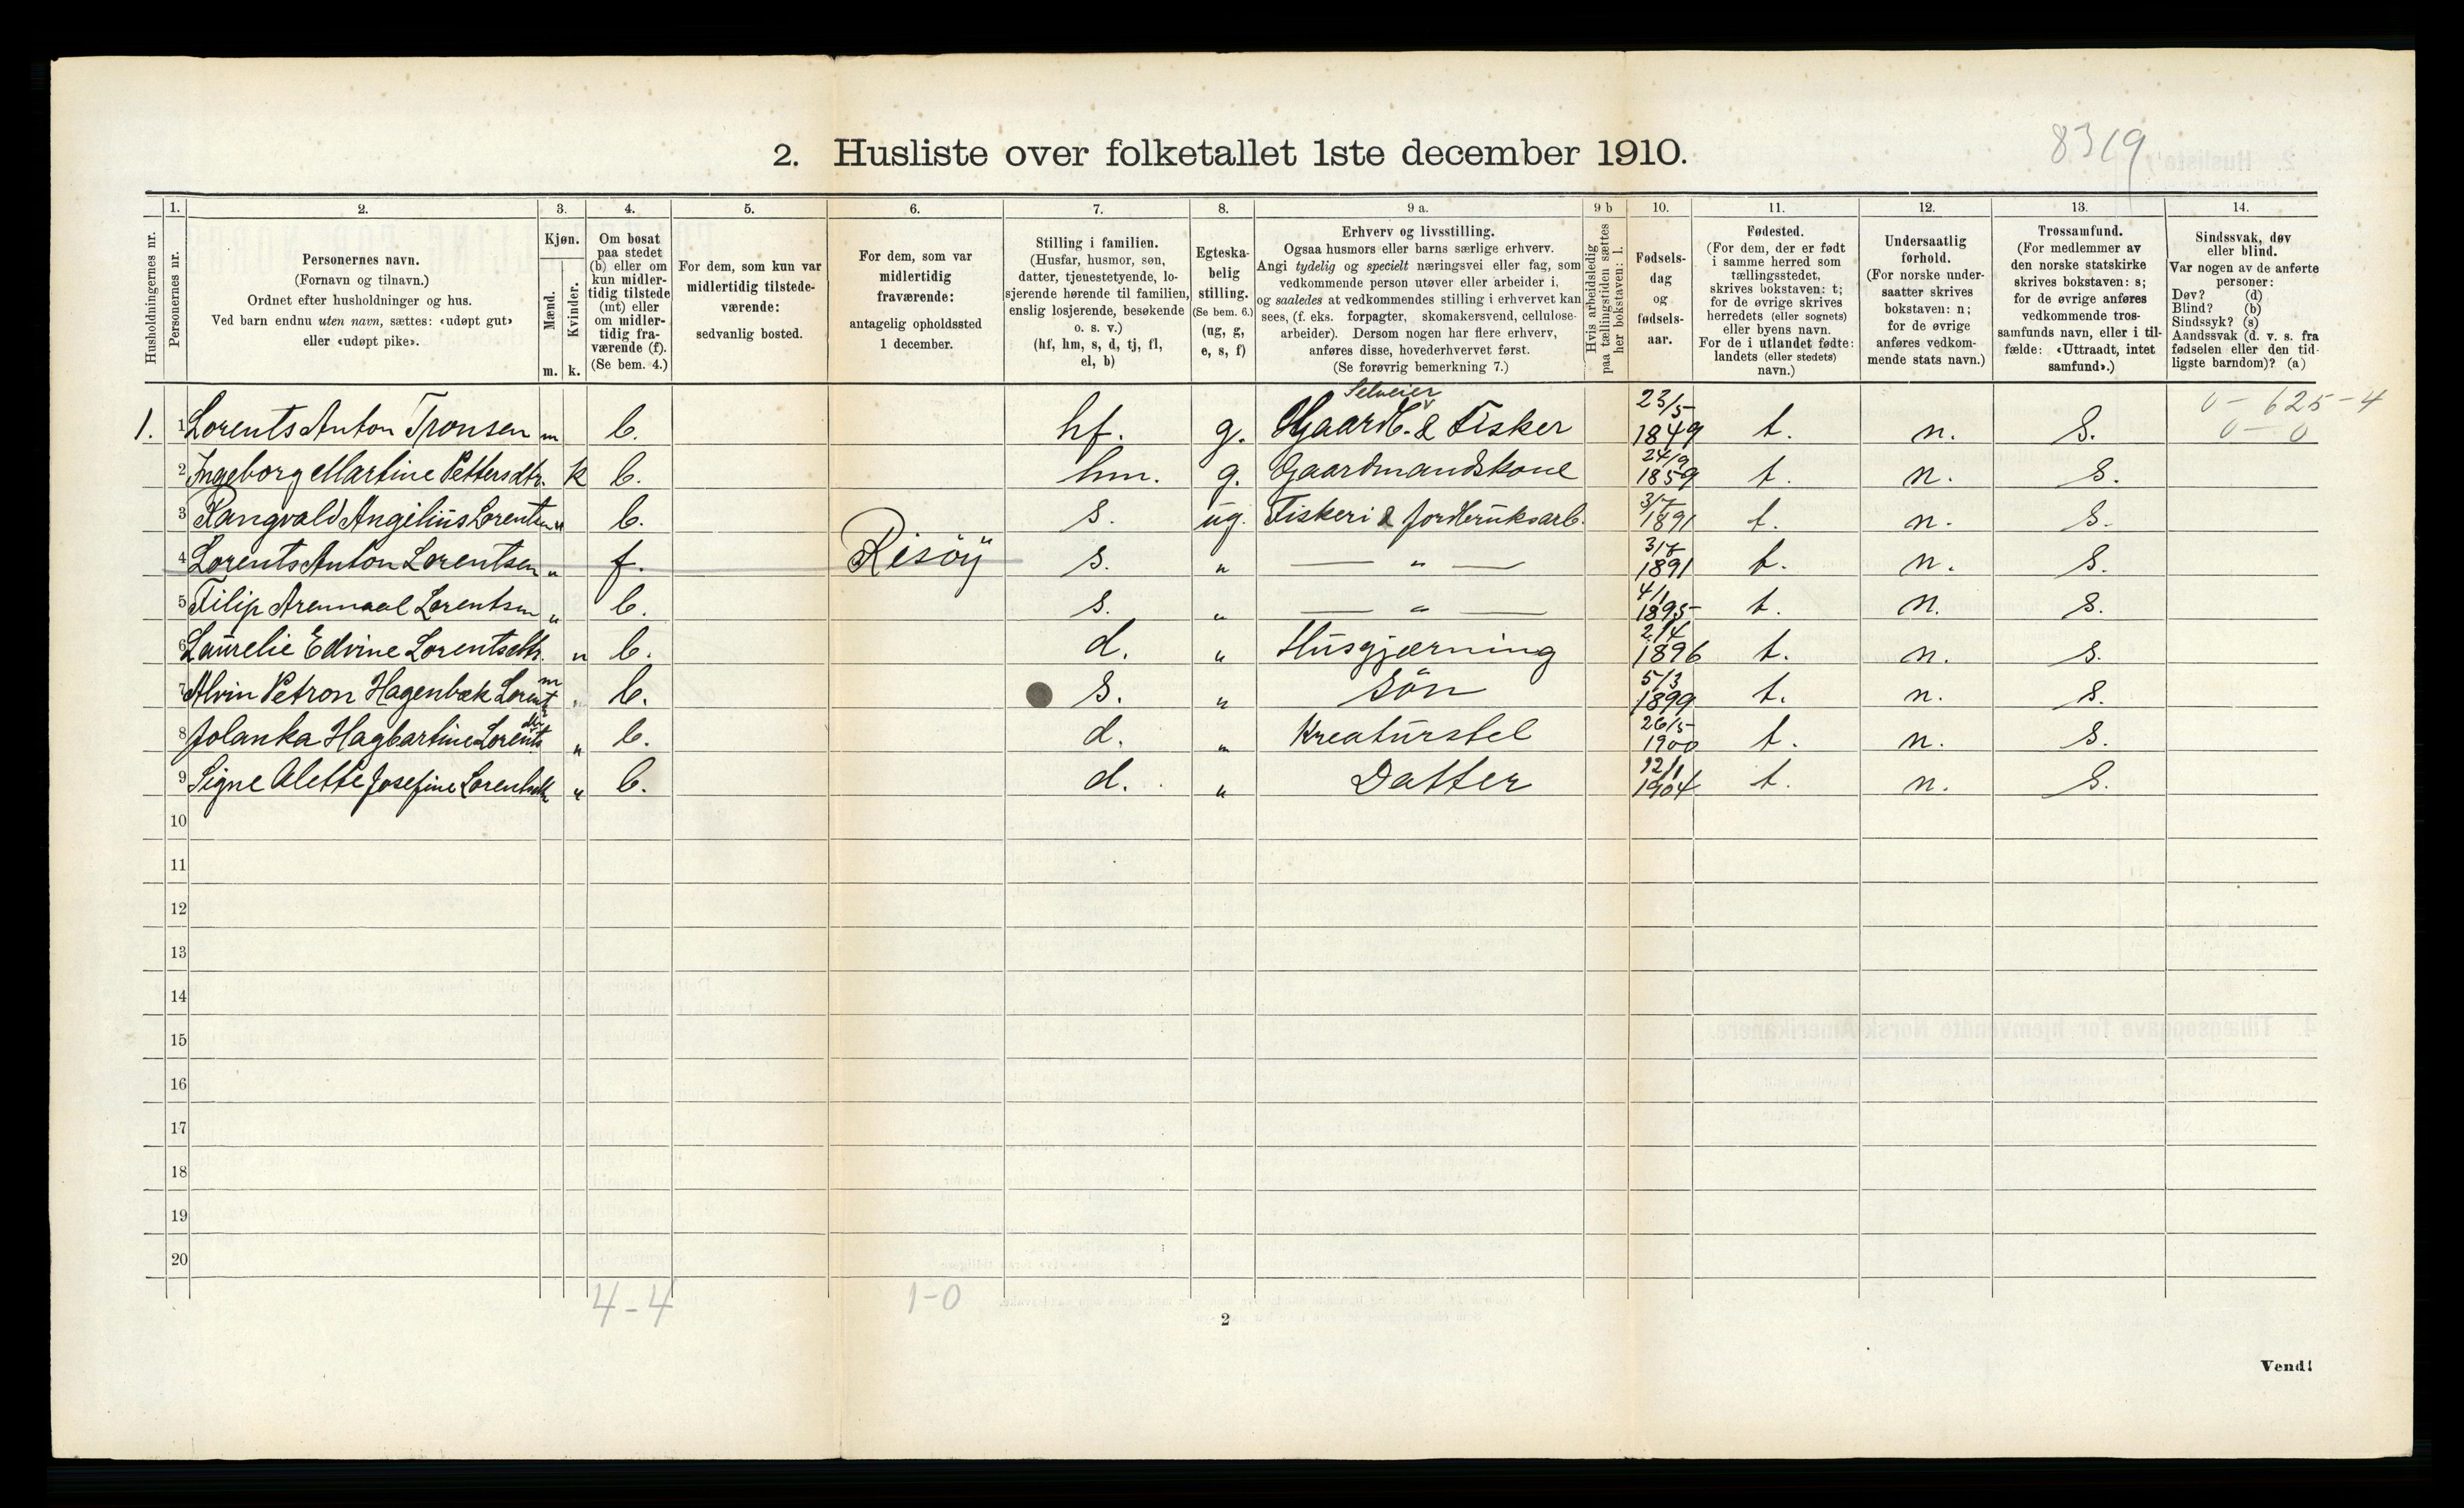 2. Husliste over folketallet 1ste december 1910.
8319
1. 2. 3. 4. 5. 6. 7. 8. 9 a. 9 b 10. 11. 12. 13. 14.
Husholdningernes nr.
Personernes nr.
Personernes navn.
(Fornavn og tilnavn.)
Ordnet efter husholdninger og hus.
Ved barn endnu uten navn, sættes: «udøpt gut»
eller «udøpt pike».
Kjøn.
Mænd.
Kvinder.
m. k.
Om bosat
paa stedet
(b) eller om
kun midler-
tidig tilstede
(mt) eller
om midler-
tidig fra-
værende (f).
(Se bem. 4.)
For dem, som kun var
midlertidig tilstede-
værende:
sedvanlig bosted.
For dem, som var
midlertidig
fraværende:
antagelig opholdssted
1 december.
Stilling i familien.
(Husfar, husmor, søn,
datter, tjenestetyende, lo-
sjerende hørende til familien,
enslig losjerende, besøkende
o. s. v.)
(hf, hm, s, d, tj, fl,
el, b)
Egteska-
belig
stilling.
(Se bem. 6.)
(ug, g,
e, s, f)
Erhverv og livsstilling.
Ogsaa husmors eller barns særlige erhverv.
Angi tydelig og specielt næringsvei eller fag, som
vedkommende person utøver eller arbeider i,
og saaledes at vedkommendes stilling i erhvervet kan
sees, (f. eks. forpagter, skomakersvend, cellulose-
arbeider). Dersom nogen har flere erhverv,
anføres disse, hovederhvervet først.
(Se forøvrig bemerkning 7.)
Hvis arbeidsledig
paa tællingstiden sættes
her bokstaven: l.
Fødsels-
dag
og
fødsels-
aar.
Fødested.
(For dem, der er født
i samme herred som
tællingsstedet,
skrives bokstaven: t;
for de øvrige skrives
herredets (eller sognets)
eller byens navn.
For de i utlandet fødte:
landets (eller stedets)
navn.)
Undersaatlig
forhold.
(For norske under-
saatter skrives
bokstaven: n;
for de øvrige
anføres vedkom-
mende stats navn.)
Trossamfund.
(For medlemmer av
den norske statskirke
skrives bokstaven: s;
for de øvrige anføres
vedkommende tros-
samfunds navn, eller i til-
fælde: «Uttraadt, intet
samfund».)
Sindssvak, døv
eller blind.
Var nogen av de anførte
personer:
Døv? (d)
Blind? (b)
Sindssyk? (s)
Aandssvak (d. v. s. fra
fødselen eller den tid-
ligste barndom)? (a)
Selveier 0 - 625 - 4
1. 1 Lorents Anton Tronsen m b. hf. g. Gaardb. & Fisker 23/5 1849 t. n. S. 0 - 0
2 Ingeborg Martine Pettersdtr. k b. hm. g. Gaardmandskone 24/9 1859 t. n. S.
3 Rangvald Angelius Lorentsen " b. s. ug. Fiskeri & Jordbruksarb. 3/7 1891 t. n. S.
4 Lorents Anton Lorentsen " f. Risöy s. " — " — 3/7 1891 t. n. S.
5 Filip Lorentsen " b. s. " — " — 4/1 1895 t. n. S.
6 Laurelie Edvine Lorentsdtr. " b. d. " Husgjærning 2/4 1896 t. n. S.
7 Alvin Petron Hagenbæk Lorents m " b. s. " Sön 5/3 1899 t. n. S.
8 Jolanka Hagbartine Lorentsdtr " b. d. " Kreaturstel 26/5 1900 t. n. S.
9 Signe Alette Josefine Lorentsdtr " b. d. " Datter 12/1 1904 t. n. S.
10
11
12
13
14
15
16
17
18
19
20
4 - 4 1 - 0
2
Vend!